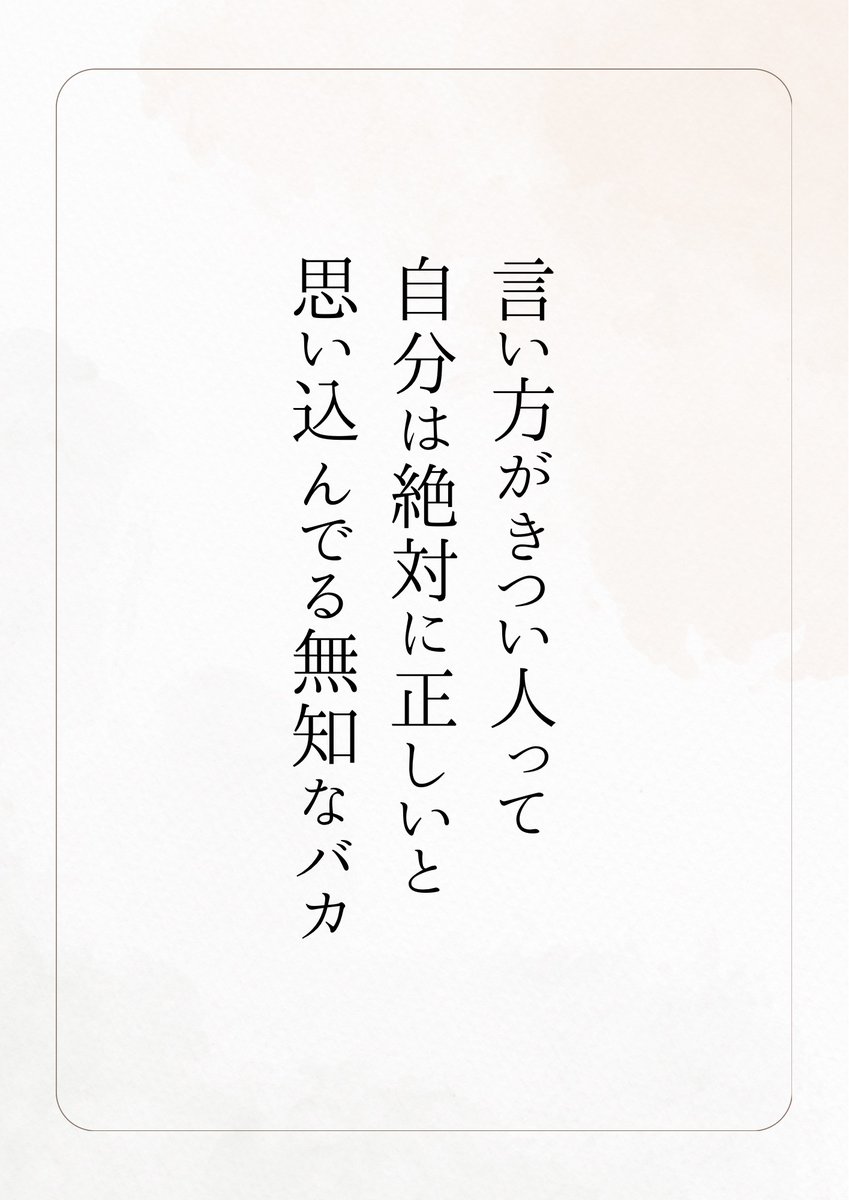 言い方がきつい人って
自分は絶対に正しいと
思い込んでる無知なバカ